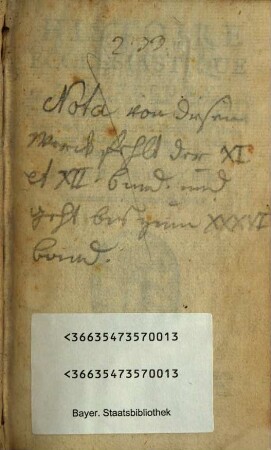 2.33.
Nota von disem
Werck fehlt der XI.
et XII. band. und
geht bis zum XXXVI
band.
<36635473570013
<36635473570013
Bayer. Staatsbibliothek